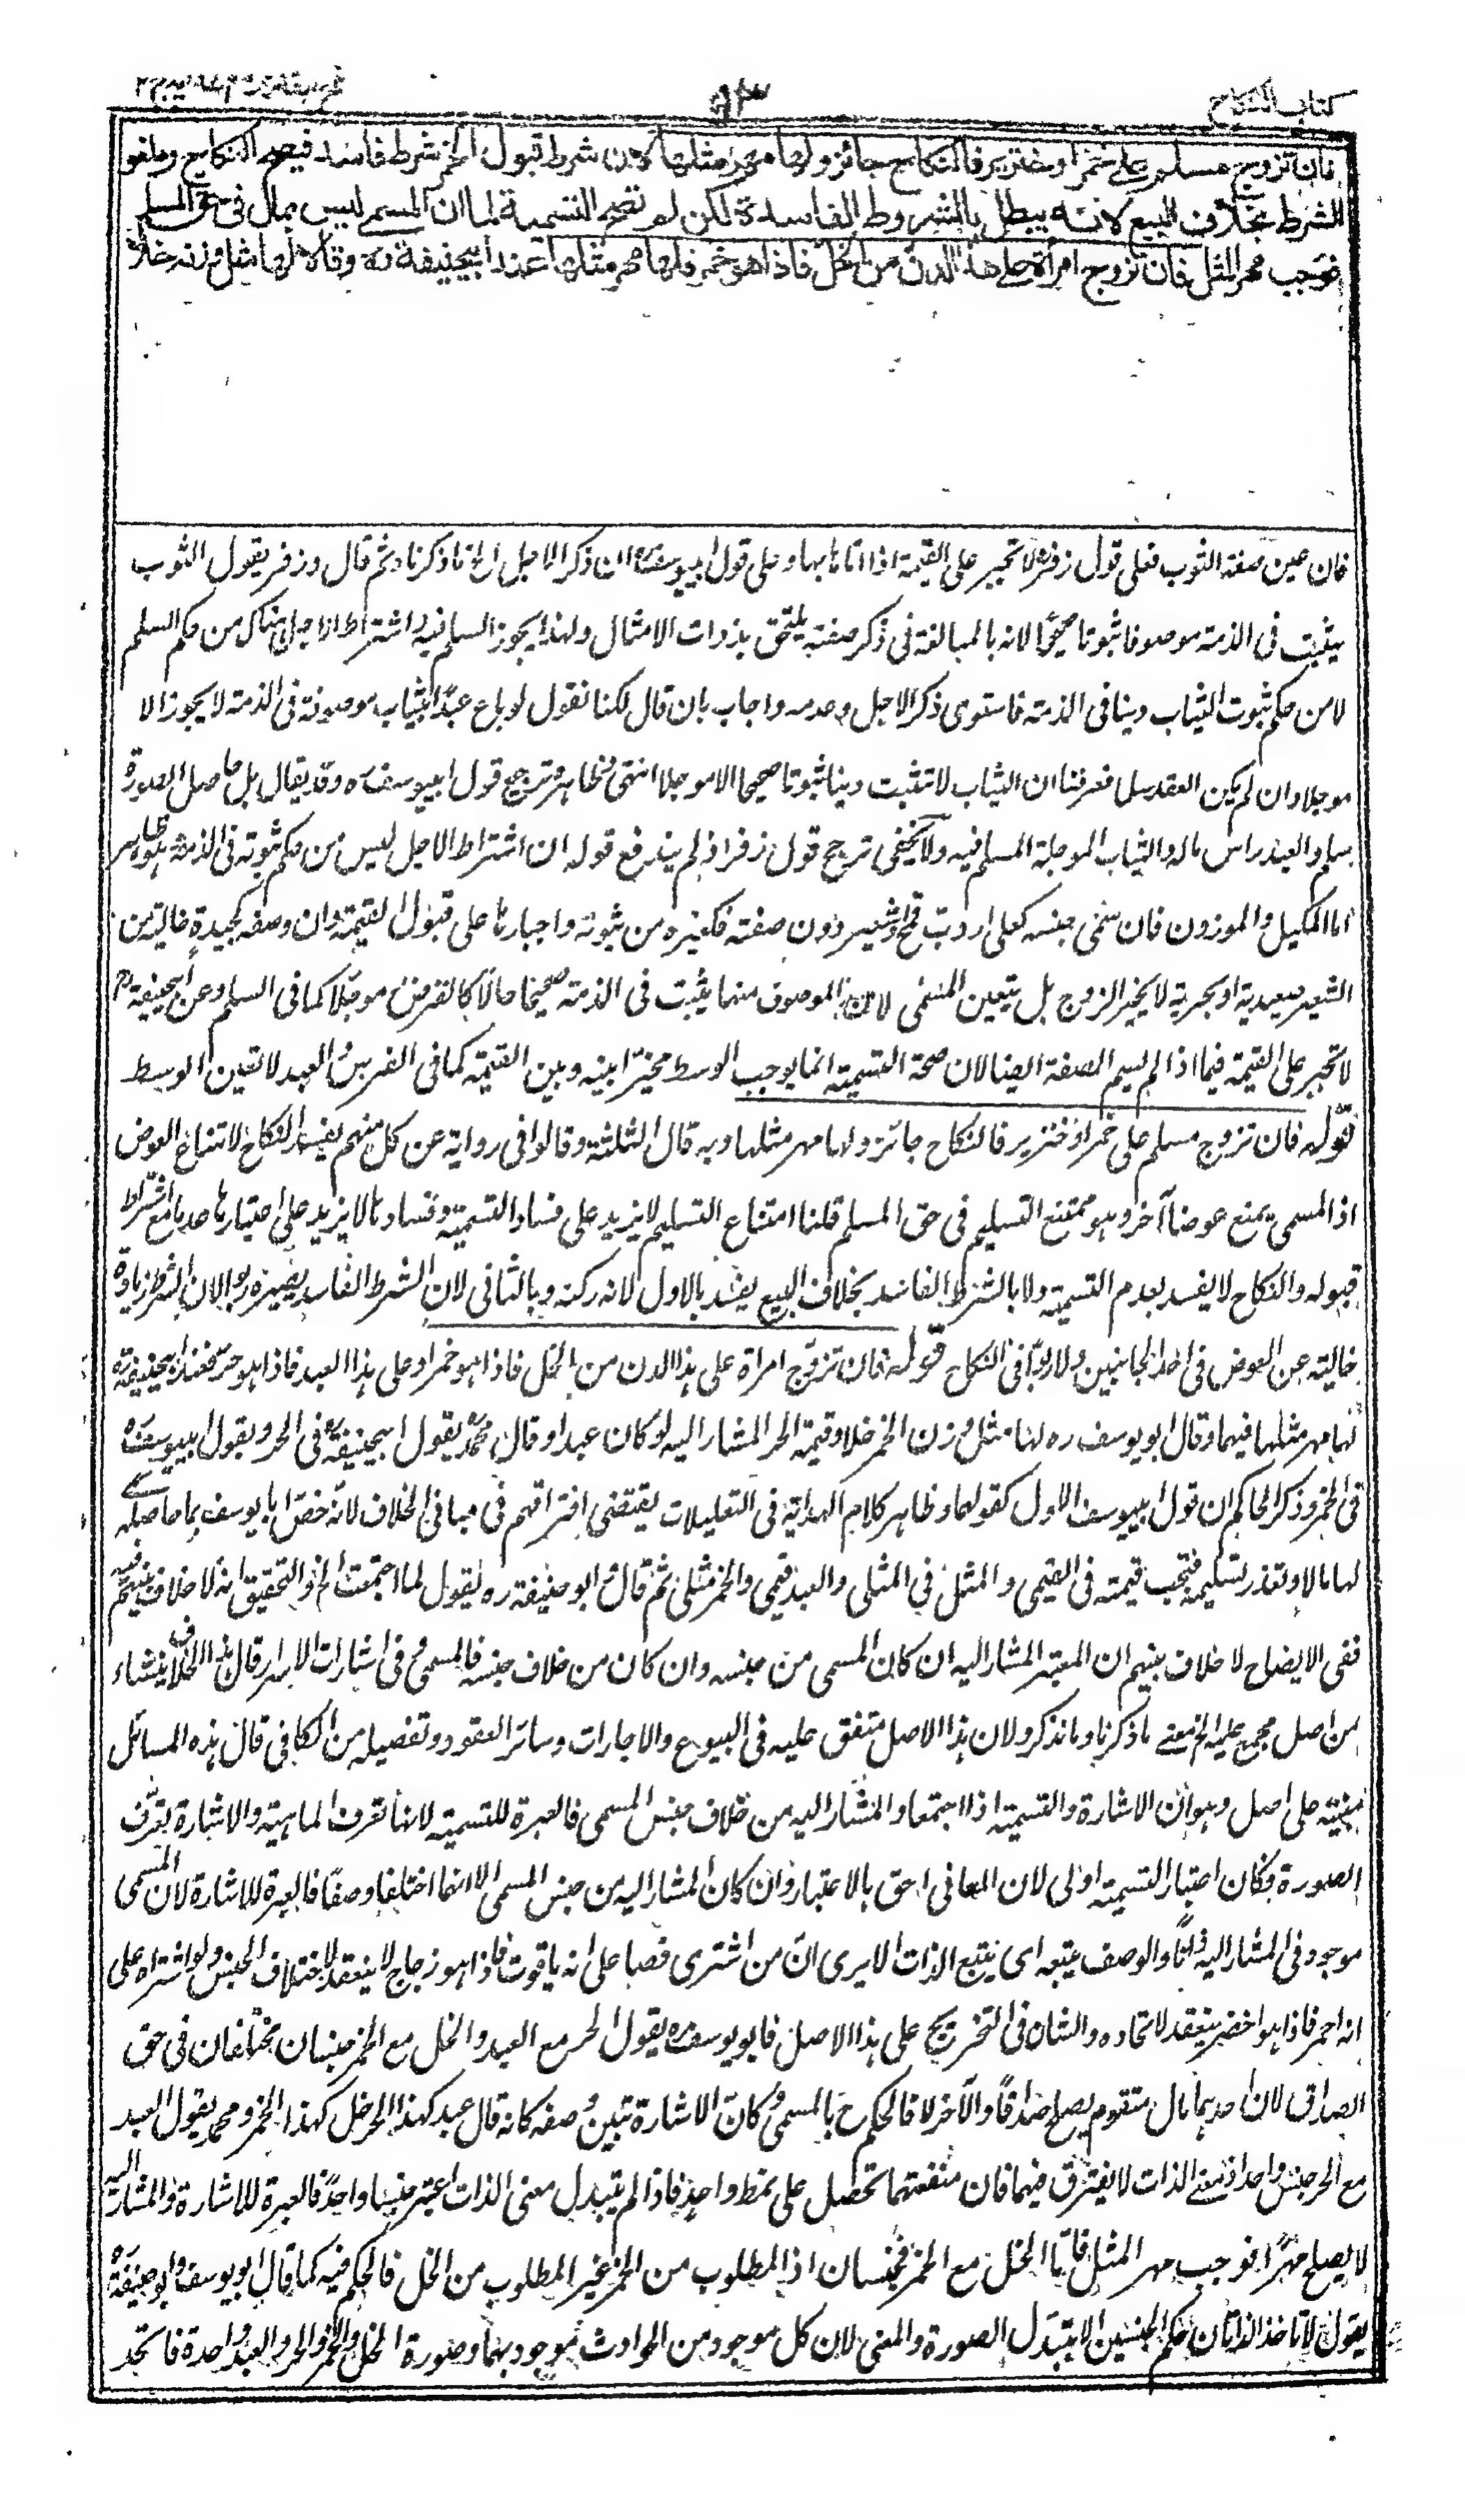 كتاب النكاح
٩٣
فان تزوج مسلم على خمر او خنزير فالنكاح جائز ولها مهر مثلها لان شرط قبول الخمر شرط فاسد فيصح النكاح ويلغو
الشرط بخلاف البيع لانه يبطل بالشروط الفاسدة لكن لم تصح التسمية لما ان المسمى ليس بمال فى حق المسلم
فوجب مهر المثل فان تزوج امرأة على هذا الدن من الخل فاذا هو خمر فلها مهر مثلها عند ابيحنيفة ره وقالا لها مثل وزنه خلا
فان عين صفة الثوب فعلى قول زفر لا تجبر على القيمة اذا اتاها بها وعلى قول ابيوسف ره ان ذكر الاجل الخ ما ذكرناه ثم قال وزفر يقول الثوب
يثبت فى الذمة موصوفا ثبوتا صحيحا لانه بالمبالغة فى ذكر صفته يلتحق بذوات الامثال ولهذا يجوز السلم فيه واشتراط الاجل هناك من حكم السلم
لا من حكم ثبوت الثياب دينا فى الذمة فاستوى ذكر الاجل وعدمه واجاب بان قال لكنا نقول لو باع عبدا بثياب موصوفة فى الذمة لا يجوز الا
موجلا وان لم يكن العقد سلما فعرفنا ان الثياب لا تثبت دينا ثبوتا صحيحا الا موجلا انتهى فظاهره ترجيح قول ابيوسف ره وقد يقال بل حاصل الصورة
سلم والعبد راس ماله والثياب الموجلة المسلم فيه ولا يخفى ترجح قول زفر اذ لم يندفع قوله ان اشتراط الاجل ليس من حكم ثبوته فى الذمة بهو ظاهر
اما المكيل والموزون فان سمى جنسه كعلى اردب قمح وشعير دون صفته فكغيره من ثبوته واجبارها على قبول القيمة وان وصفه كجيدة خالية من
الشعير صعيدية او بحرية لا يخير الزوج بل يتعين المسمى لان الموصوف منهما يثبت فى الذمة صحيحا حالا كالقرض وموجلا كما فى السلم وعن ابيحنيفة ره
لا تجبر على القيمة فيما اذا لم يسم الصفة ايضا لان صحة التسمية انما يوجب الوسط مخيرا بينه وبين القيمة كما فى الفرس والعبد لا تعين الوسط
قوله فان تزوج مسلم على خمر او خنزير فالنكاح جائز ولها مهر مثلها وبه قال الثلثة وقالوا فى رواية عن كل منهم يفسد النكاح لامتناع العوض
اذ المسمى يمنع عوضا آخر وهو ممتنع التسليم فى حق المسلم قلنا امتناع التسليم لا يزيد على فساد التسمية وفسادها لا يزيد على اعتبارها عدما مع اشتراط
قبوله والنكاح لا يفسد بعدم التسمية ولا بالشرط الفاسد بخلاف البيع يفسد بالاول لانه ركنه وبالثانى لان الشرط الفاسد يصيره ربوا لان الشرط زيادة
خالية عن العوض فى احد الجانبين ولا ربوا فى النكاح قوله فان تزوج امراة على هذا الدن من الخل فاذا هو خمر او على هذا العبد فاذا هو حر فعند ابيحنيفة ره
لها مهر مثلها فيهما وقال ابو يوسف ره لها مثل وزن الخمر خلا وقيمة الحر المشار اليه لو كان عبدا وقال محمد يقول ابيحنيفة ره فى الحر وبقول ابيوسف ره
فى الخمر وذكر الحاكم ان قول ابيوسف الاول كقولهما وظاهر كلام الهداية فى التعليلات يقتضى افتراقهم فى مبانى الخلاف لانه خص ابا يوسف بما حاصله سمى
لها مالا وتعذر تسليمه فتجب قيمته فى القيمى والمثل فى المثلى والعبد قيمى والخمر مثلى ثم قال ابو حنيفة ره يقول لما اجتمعت الخ والتحقيق انه لا خلاف بينهم فيه
ففى الايضاح لا خلاف بينهم ان المعتبر المشار اليه ان كان المسمى من جنسه وان كان من خلاف جنسه فالمسمى وفى اشارات الاسرار قال هذا الخلاف ينشاء
من اصل مجمع عليه الخ بمعنى ما ذكرنا وما نذكر ولان هذا الاصل متفق عليه فى البيوع والاجارات وسائر العقود وتفصيله من الكافى قال هذه المسائل
مبنية على اصل وهو ان الاشارة والتسمية اذا اجتمعا والمشار اليه من خلاف جنس المسمى فالعبرة للتسمية لانها تعرف الماهية والاشارة تعرف
الصورة فكان اعتبار التسمية اولى لان المعانى احق بالاعتبار وان كان المشار اليه من جنس المسمى الا انهما اختلفا وصفا فالعبرة للاشارة لان المسمى
موجود فى المشار اليه ذاتا والوصف يتبعه اى يتبع الذات الا يرى ان من اشترى فصا على انه ياقوت فاذا هو زجاج لا ينعقد لاختلاف الجنس ولو اشتراه على
انه احمر فاذا هو اخضر ينعقد لاتحاده والشان فى التخريج على هذا الاصل فابو يوسف ره يقول الحر مع العبد والخل مع الخمر جنسان مختلفان فى حق
الصداق لان احدهما مال متقوم يصلح صداقا والآخر لا فالحكم ح بالمسمى وكان الاشارة تبين وصفه كانه قال عبد كهذا الحر خل كهذا الخمر ومحمد يقول العبد
مع الحر جنس واحد اذ معنى الذات لا يفترق فيهما فان منفعتهما تحصل على نمط واحد فاذا لم يتبدل معنى الذات اعتبر جنسا واحدا فالعبرة للاشارة والمشار اليه
لا يصلح مهرا فوجب مهر المثل فاما الخل مع الخمر فجنسان اذ المطلوب من الخمر غير المطلوب من الخل فالحكم فيه كما قال ابو يوسف وابو حنيفة ره
يقول لا تاخذ الذاتان حكم الجنسين الا بتبدل الصورة والمعنى لان كل موجود من الحوادث موجود بهما وصورة الخل والخمر والحر والعبد واحدة فاتحد